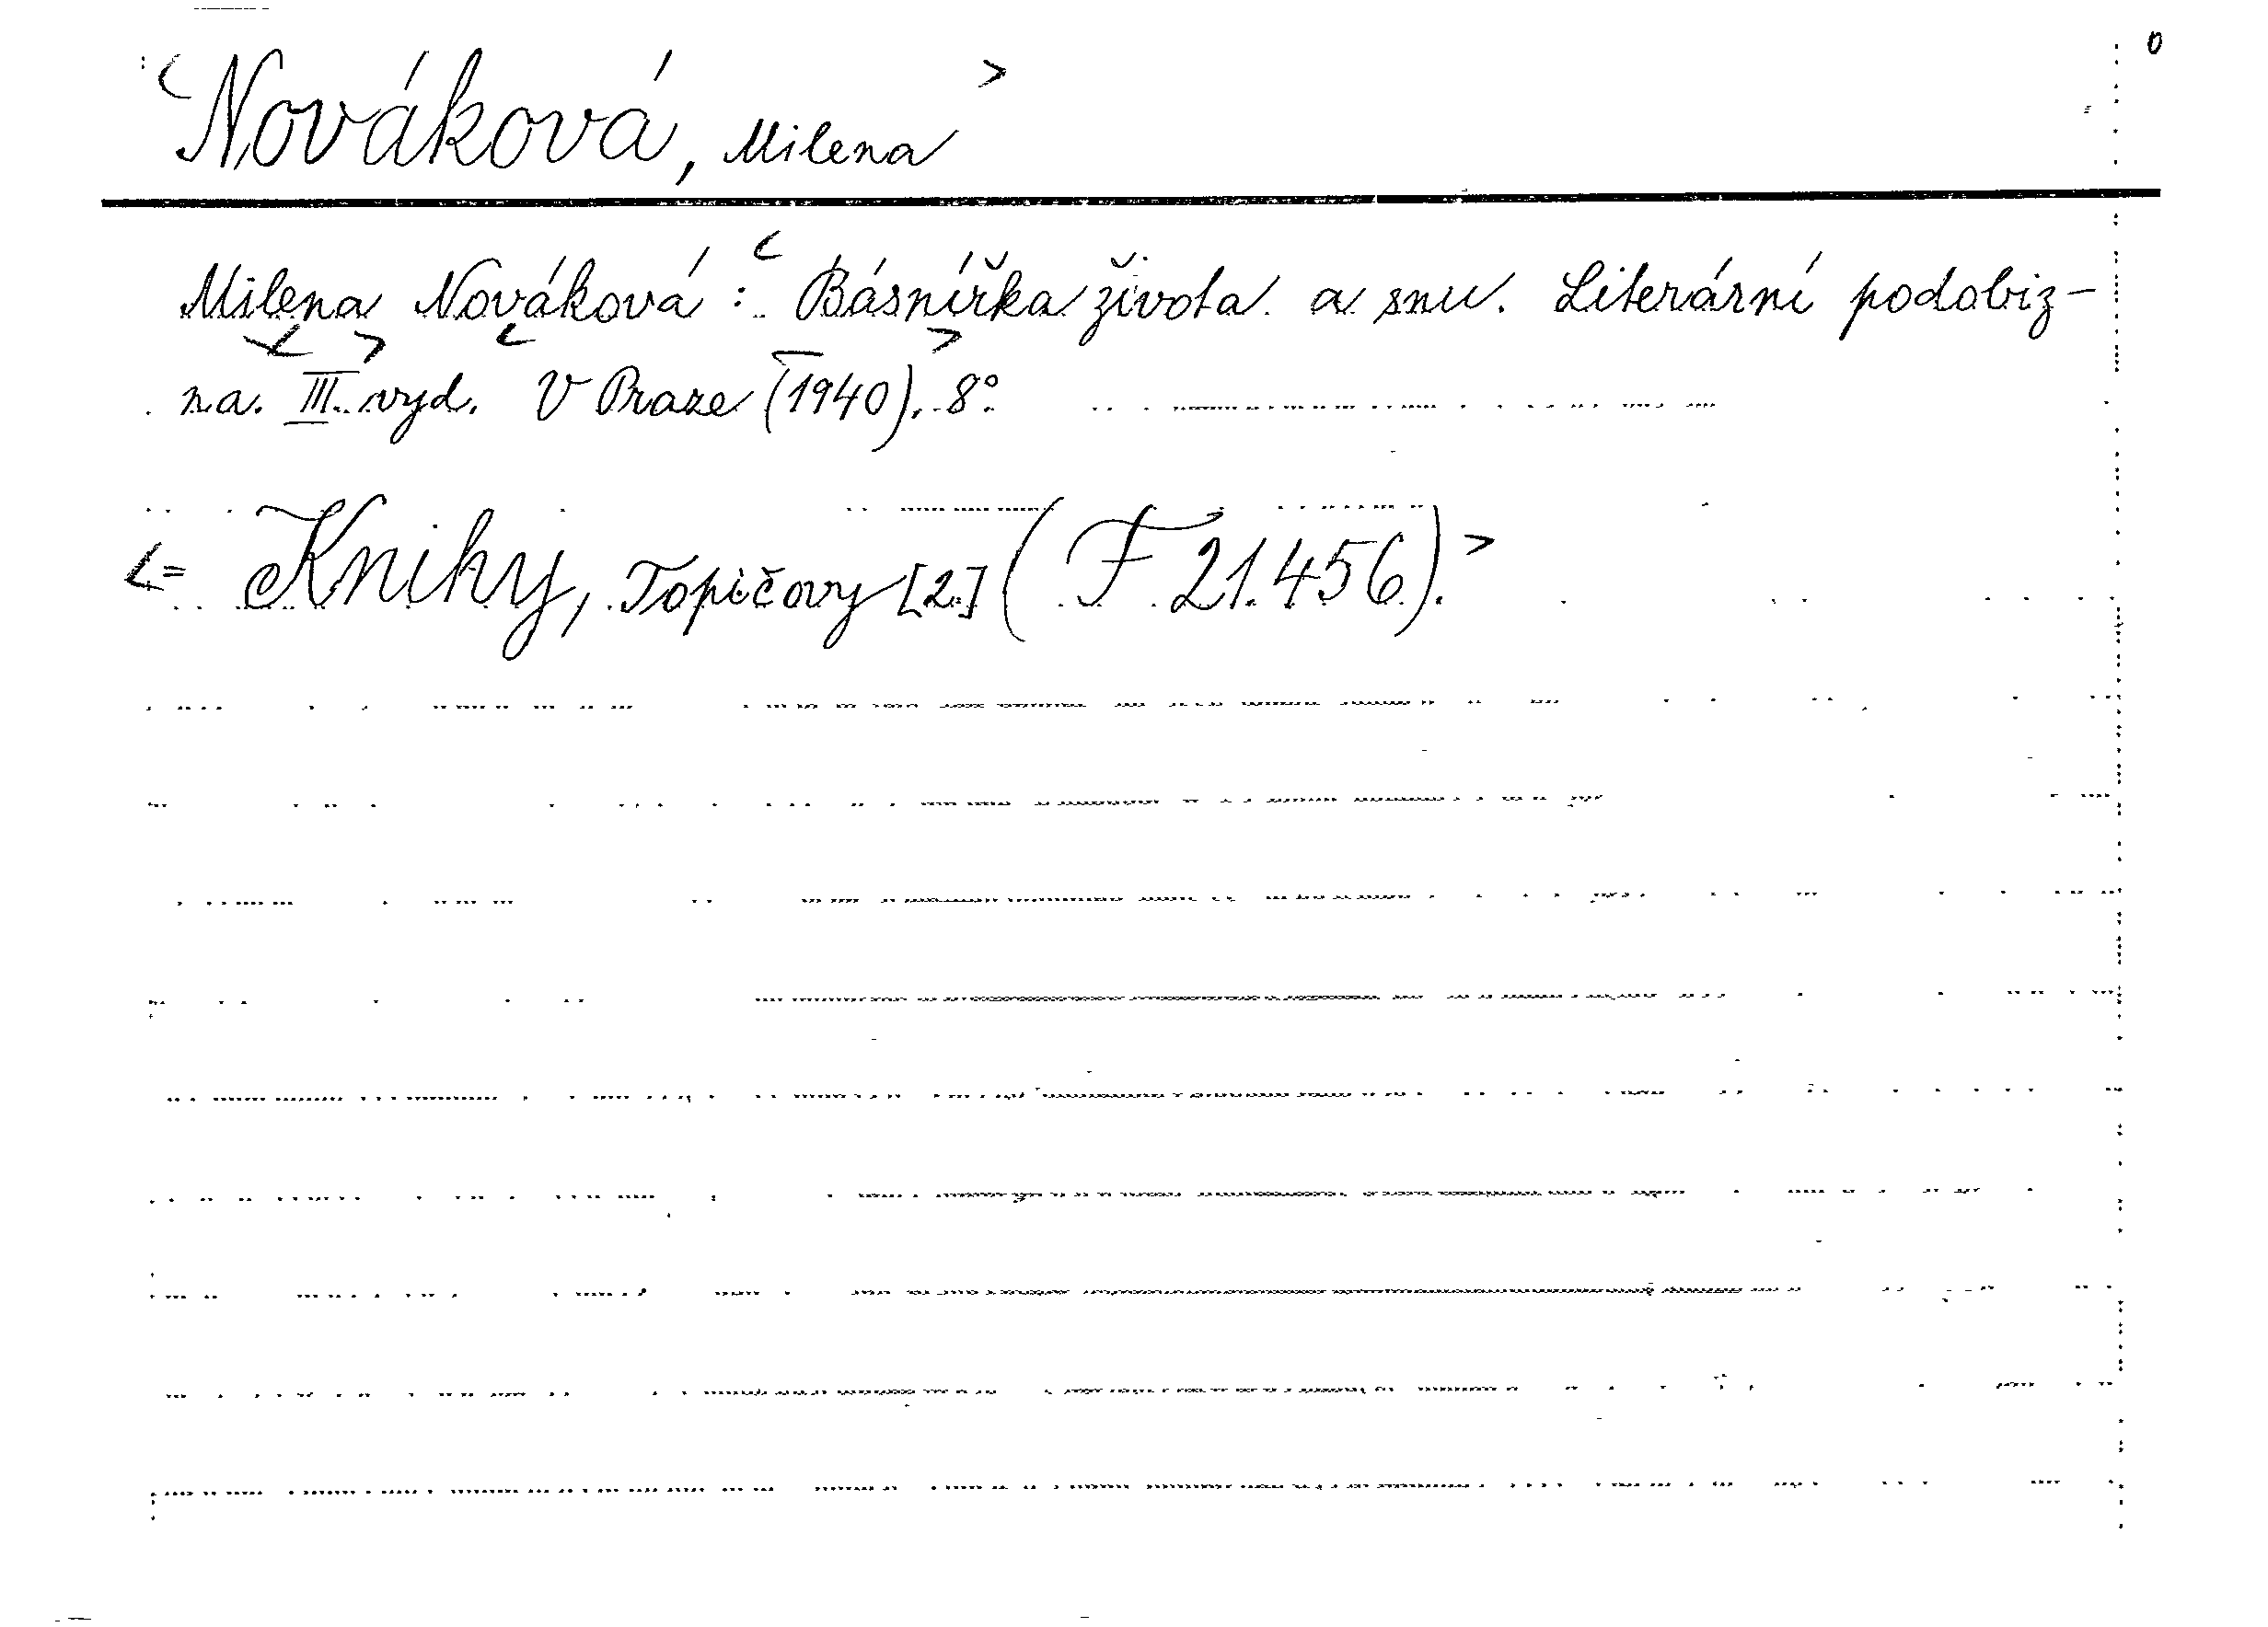 Nováková, Milena
Milena Nováková: Básnířka života a snu. Literární podobiz-
na. III. vyd. V Praze (1940). 8°.
= Knihy, Topičovy [2.] (F 21.456).